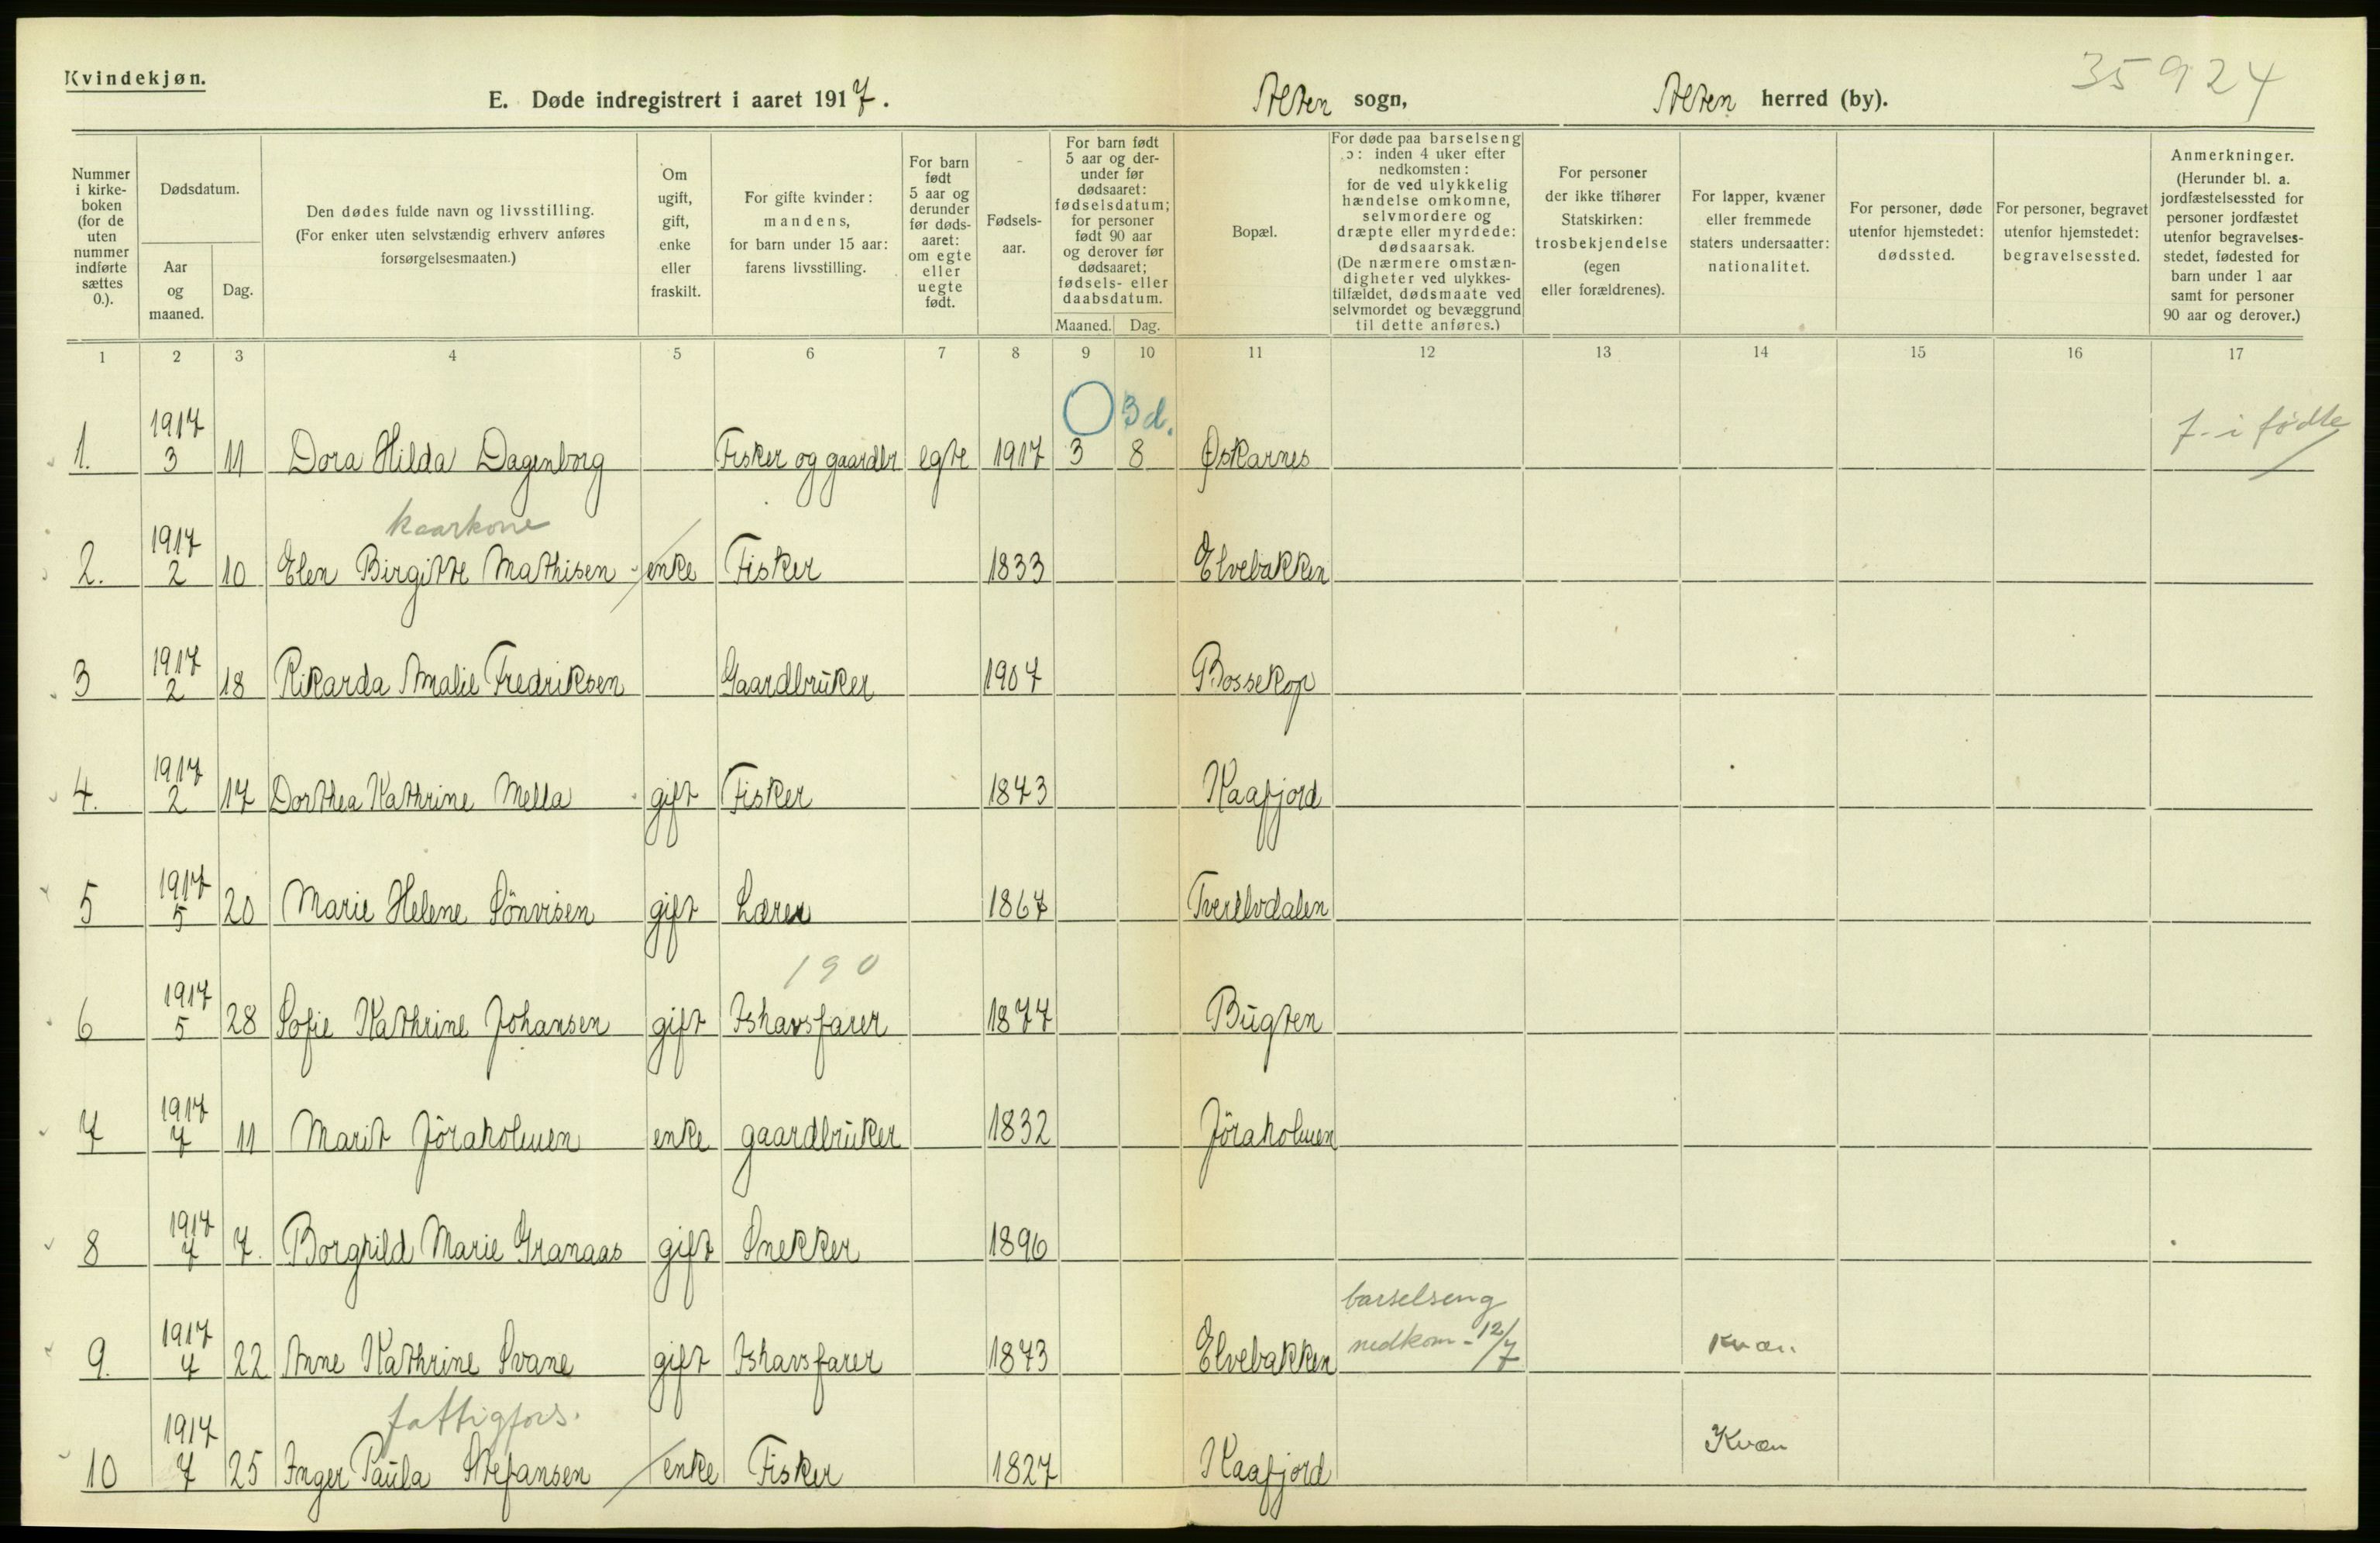 Kvindekjøn.
35924
E. Døde indregistrert i aaret 1917.
Alten sogn, Alten herred (by).
Nummer i kirke- boken (for de uten nummer indførte sættes 0.).
Dødsdatum.
Aar og maaned.
Dag.
Den dødes fulde navn og livsstilling.
(For enker uten selvstændig erhverv anføres
forsørgelsesmaaten.)
Om ugift, gift, enke eller fraskilt.
For gifte kvinder: mandens, for barn under 15 aar: farens livsstilling.
For barn født 5 aar og derunder før døds- aaret: om egte eller uegte født.
Fødsels- aar.
For barn født 5 aar og der- under før dødsaaret: fødselsdatum; for personer født 90 aar og derover før dødsaaret; fødsels- eller daabsdatum.
Maaned. Dag.
Bopæl.
For døde paa barselseng ɔ: inden 4 uker efter nedkomsten: for de ved ulykkelig hændelse omkomne, selvmordere og dræpte eller myrdede: dødsaarsak. (De nærmere omstæn- digheter ved ulykkes- tilfældet, dødsmaate ved selvmordet og bevæggrund til dette anføres.)
For personer der ikke tilhører Statskirken: trosbekjendelse (egen eller forældrenes).
For lapper, kvæner eller fremmede staters undersaatter: nationalitet.
For personer, døde utenfor hjemstedet: dødssted.
For personer, begravet utenfor hjemstedet: begravelsessted.
Anmerkninger. (Herunder bl. a. jordfæstelsessted for personer jordfæstet utenfor begravelses- stedet, fødested for barn under 1 aar samt for personer 90 aar og derover.)
1 2 3 4 5 6 7 8 9 10 11 12 13 14 15 16 17
0 3 d.
1. 1917 3 11 Dora Hilda Dagenborg Fisker og gaardbr egte 1917 3 8 Øskarnes f. i fødte
kaarkone
2. 1917 2 10 Elen Birgitte Mathisen enke Fisker 1833 Elvebakken
3 1917 2 18 Rikarda Amalie Fredriksen Gaardbruker 1907 Bossekop
4. 1917 2 17 Dorthea Kathrine Mella gift Fisker 1843 Kaafjord
5 1917 5 20 Marie Helene Sönvisen gift Lærer 1867 Tverelvdalen
190
6 1917 5 28 Sofie Kathrine Johansen gift Ishavsfarer 1877 Bugten
7 1917 7 11 Marit Jöraholmen enke gaardbruker 1832 Jöraholmen
8 1917 7 7. Borghild Marie Granaas gift Snekker 1896
barselseng
9. 1917 7 22 Anne Kathrine Svane gift Ishavsfarer 1873 Elvebakken nedkom - 12/7 Kvæn
fattigfors.
10 1917 7 25 Inger Paula Stefansen enke Fisker 1827 Kaafjord Kvæn